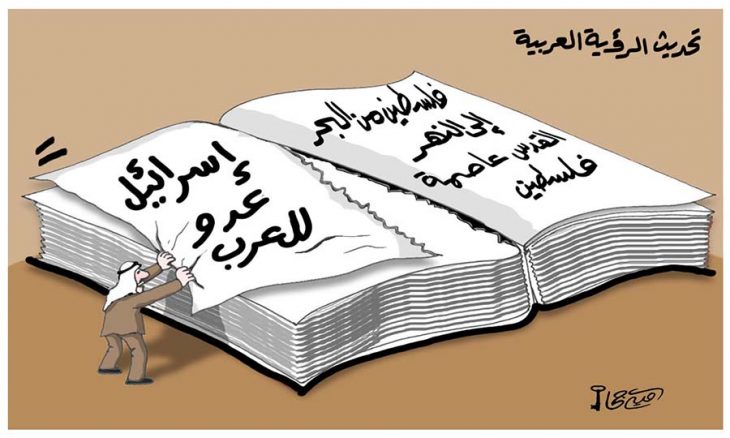 تحديث الرؤية العربية
فلسطين من البحر
إلى النهر
القدس عاصمة
فلسطين
إسرائيل
عدو
للعرب